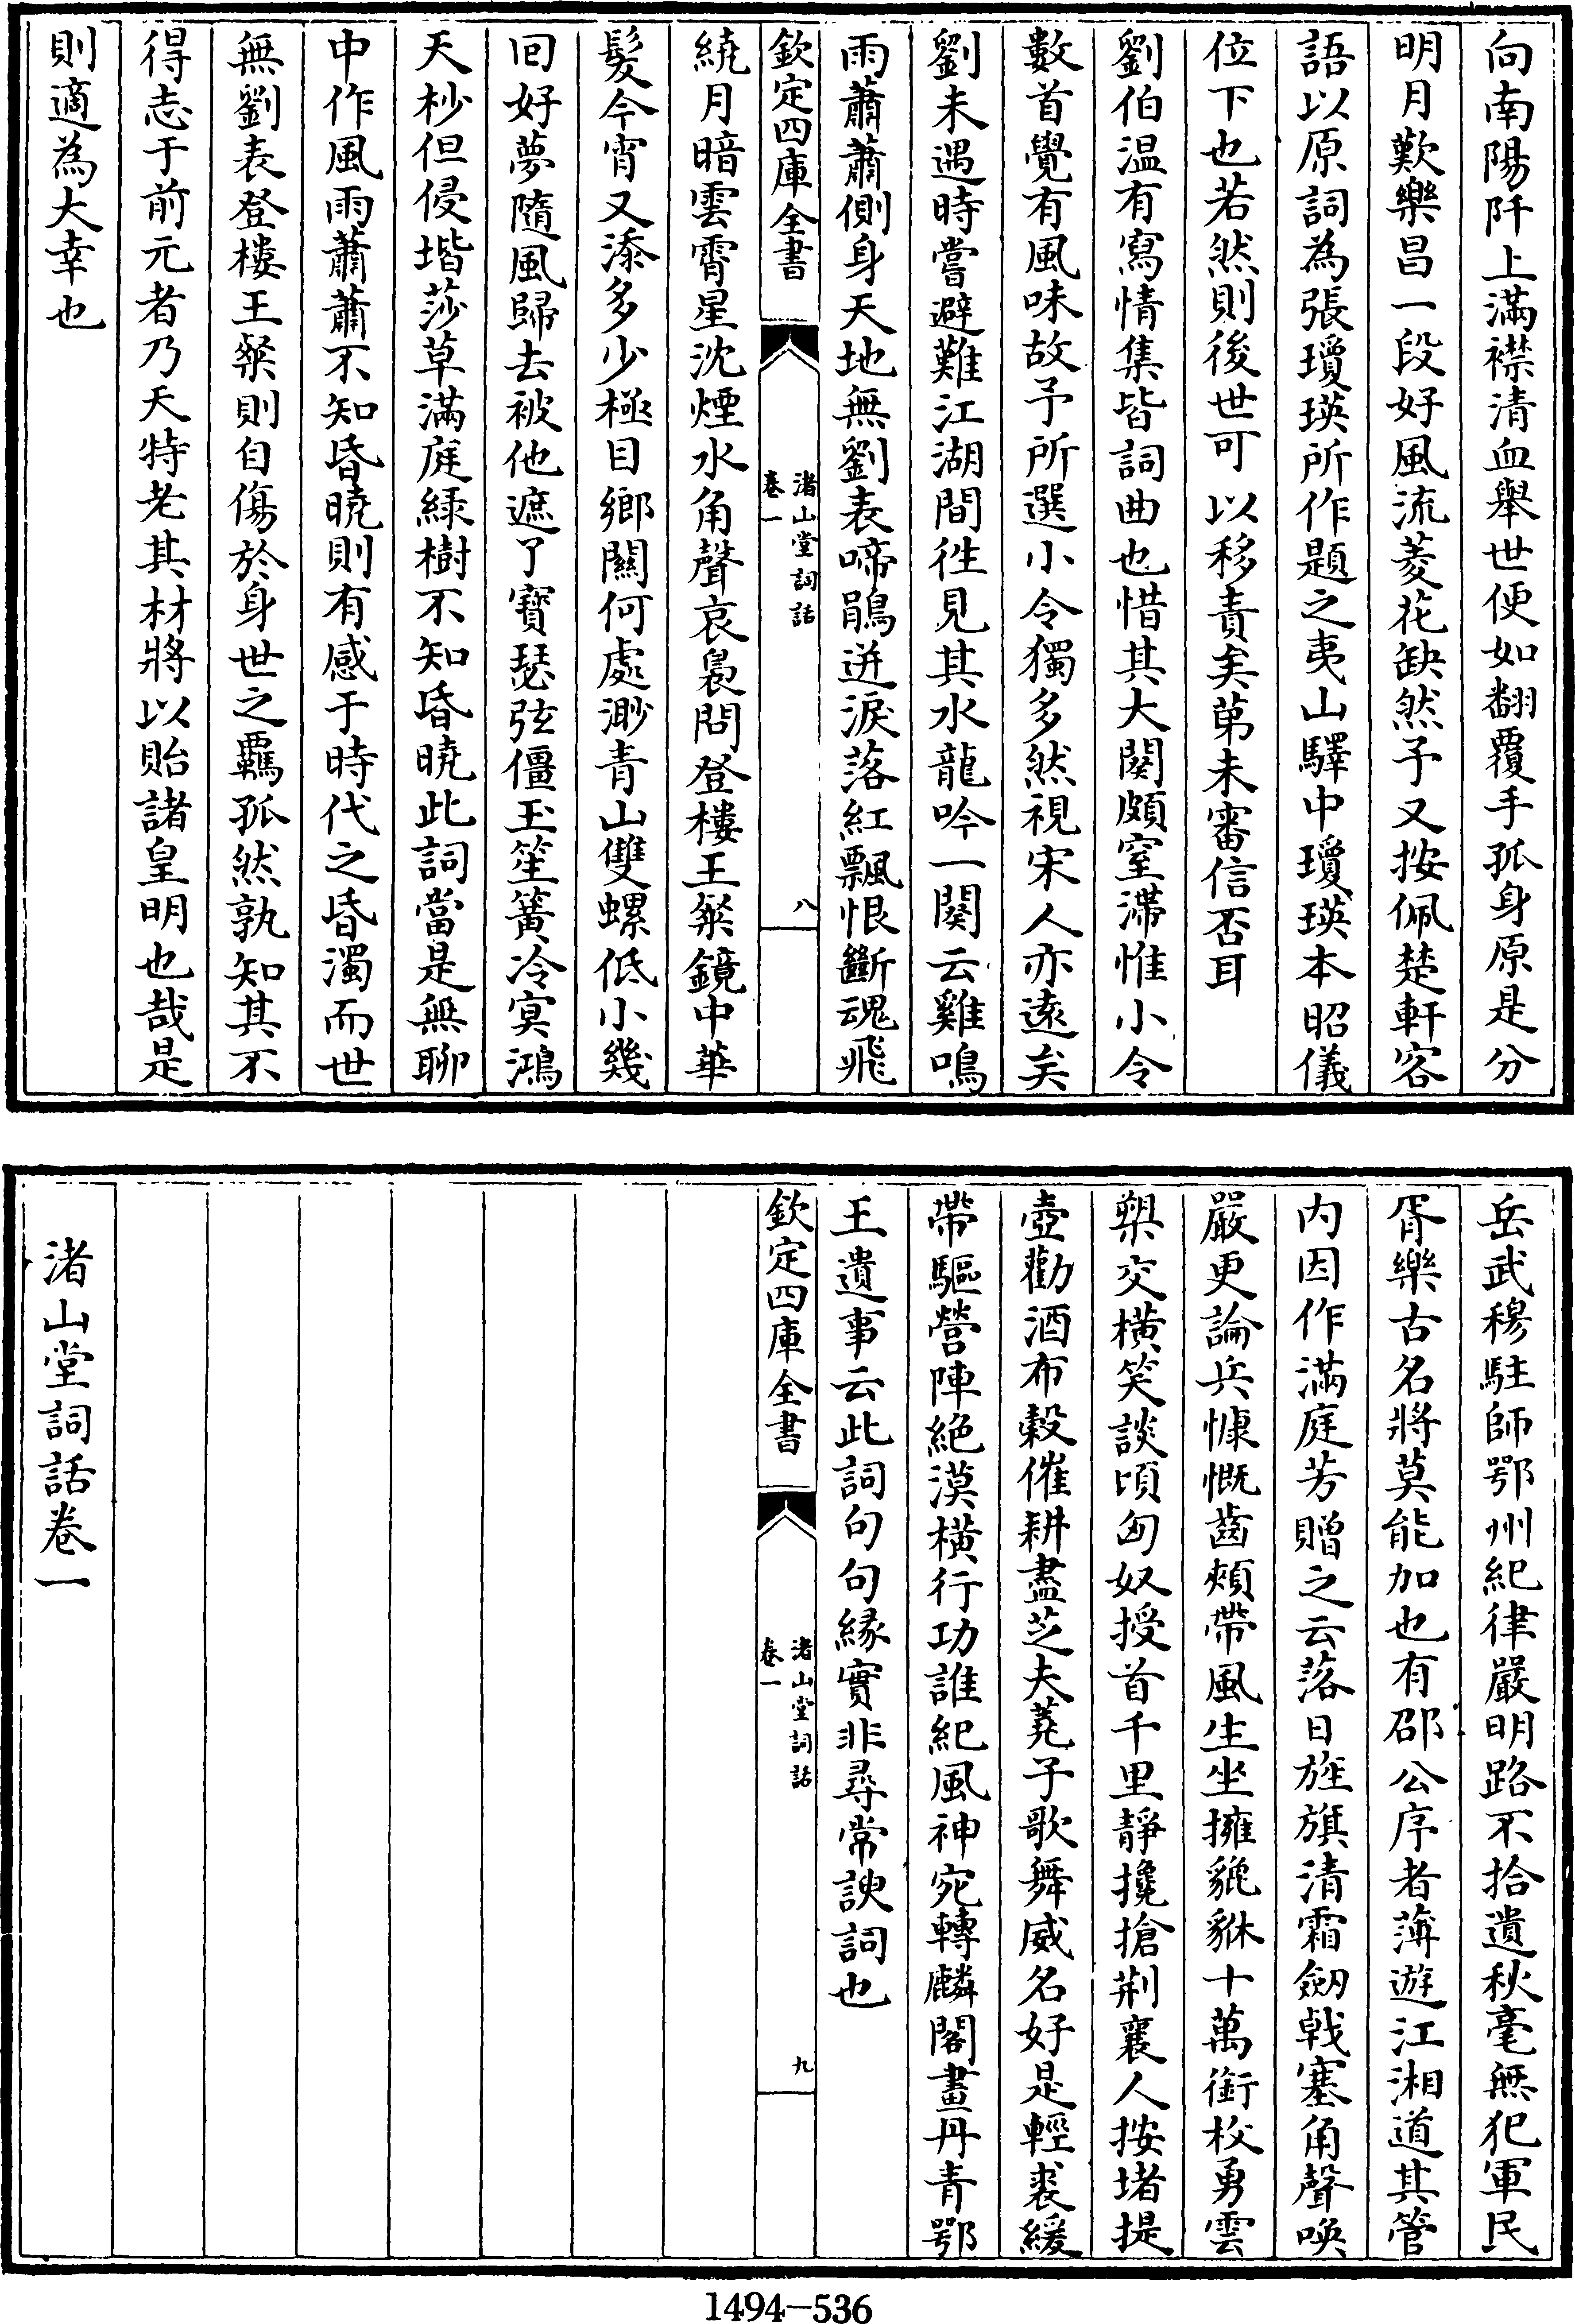 向南陽阡上滿襟清血舉世便如翻覆手孤身原是分
明月歎樂昌一段好風流菱花缺然予又按佩楚軒客
語以原詞為張瓊瑛所作題之夷山驛中瓊瑛本昭儀
位下也若然則後世可以移責矣第未審信否耳
劉伯温有寫情集皆詞曲也惜其大闋頗窒滯惟小令
數首覺有風味故予所選小令獨多然視宋人亦遠矣
劉未遇時嘗避難江湖間徃見其水龍吟一闋云雞鳴
雨蕭蕭側身天地無劉表啼鵑迸淚落紅飄恨斷魂飛
欽定四庫全書
渚山堂詞話
卷一
八
繞月暗雲霄星沈煙水角聲哀裊問登樓王粲鏡中華
髪今宵又添多少極目鄉關何處渺青山雙螺低小幾
回好夢隨風歸去被他遮了寳瑟弦僵玉笙簧冷㝠鴻
天杪但侵堦莎草滿庭緑樹不知昏曉此詞當是無聊
中作風雨蕭蕭不知昏曉則有感于時代之昏濁而世
無劉表登樓王粲則自傷於身世之羈孤然孰知其不
得志于前元者乃天特老其材將以貽諸皇明也哉是
則適為大幸也
岳武穆駐師鄂州紀律嚴明路不拾遺秋毫無犯軍民
胥樂古名將莫能加也有邵公序者薄遊江湘道其管
内因作滿庭芳贈之云落日旌旗清霜劒戟塞角聲喚
嚴更論兵慷慨齒頰帶風生坐擁貔貅十萬銜枚勇雲
槊交横笑談頃匈奴授首千里靜攙搶荆襄人按堵提
壺勸酒布穀催耕盡芝夫蕘子歌舞威名好是輕裘緩
帶驅營陣絶漠横行功誰紀風神宛轉麟閣畫丹青鄂
王遺事云此詞句句緣實非尋常諛詞也
欽定四庫全書
渚山堂詞話
卷一
九
渚山堂詞話卷一
1494-536